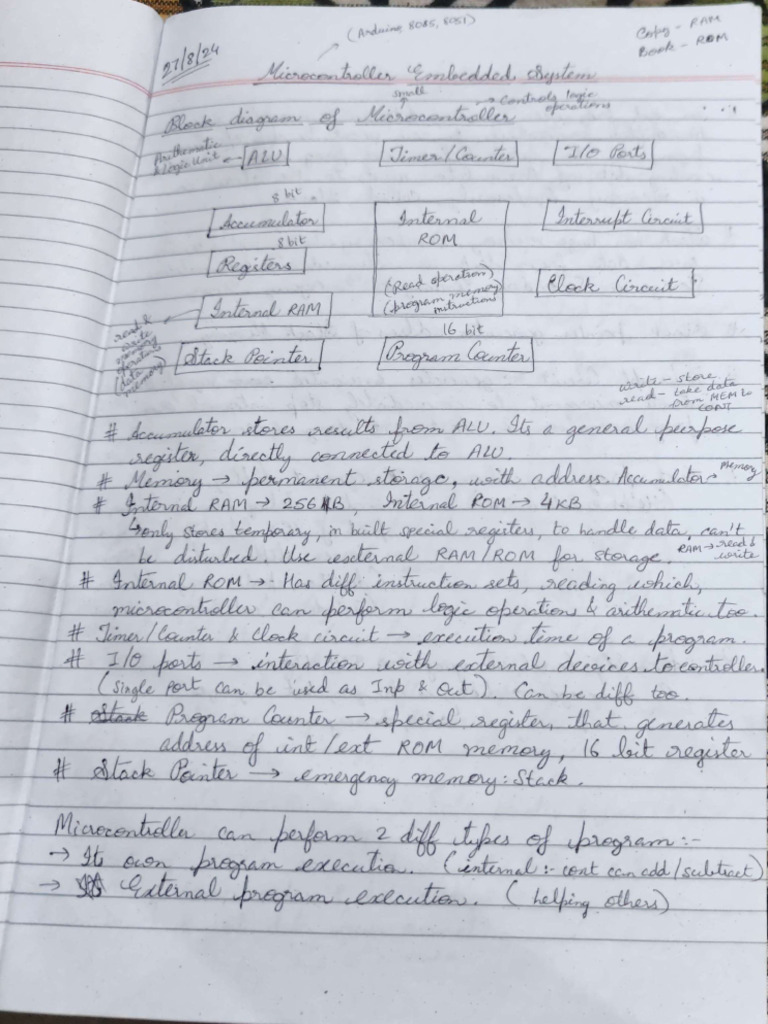 27/8/24
(Arduino, 8085, 8051)
Copy - RAM
Book - ROM
Microcontroller Embedded System
small
→ Controls logic
operations
Block diagram of Microcontroller
Arithematic
& Logic Unit ← ALU
Timer/Counter
I/O Ports
8 bit
Accumulator
Internal
ROM
(Read operation)
(program memory
instructions
Interrupt Circuit
8 bit
Registers
Clock Circuit
Internal RAM
read &
write
operations
(data
memory)
Stack Pointer
16 bit
Program Counter
write - store
read - take data
from MEM to
CONT
# Accumulator stores results from ALU. Its a general purpose
register, directly connected to ALU.
# Memory → permanent storage, with address. Accumulator → Memory
# Internal RAM → 256 B, Internal ROM → 4KB
↳ only stores temporary, in built special registers, to handle data, can't
be disturbed. Use external RAM/ROM for storage. RAM → read &
write
# Internal ROM → Has diff instruction sets, reading which,
microcontroller can perform logic operation & arithematic too.
# Timer/Counter & Clock circuit → execution time of a program.
# I/O ports → interaction with external devices to controller.
(Single port can be used as Inp & Out). Can be diff too.
# Stack Program Counter → special register, that generates
address of int/ext ROM memory, 16 bit register
# Stack Pointer → emergency memory: Stack.
Microcontroller can perform 2 diff types of program :-
→ Its own program execution. (internal :- cont can add/subtract)
→ External program execution. (helping others)